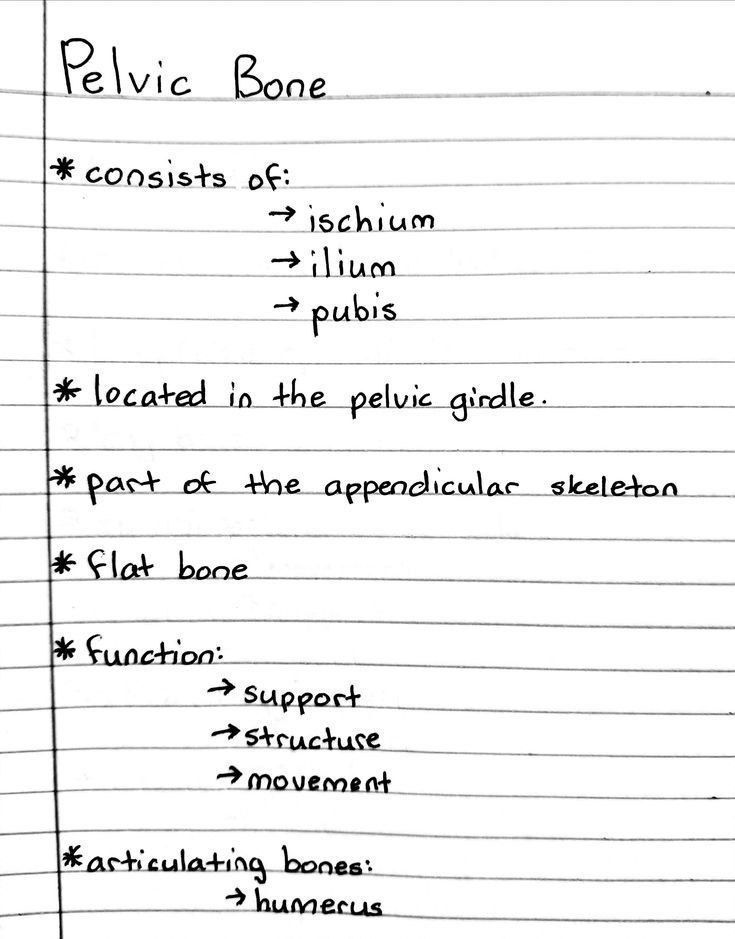 Pelvic Bone
* consists of:
→ ischium
→ ilium
→ pubis
* located in the pelvic girdle.
* part of the appendicular skeleton
* flat bone
* function:
→ support
→ structure
→ movement
* articulating bones:
→ humerus